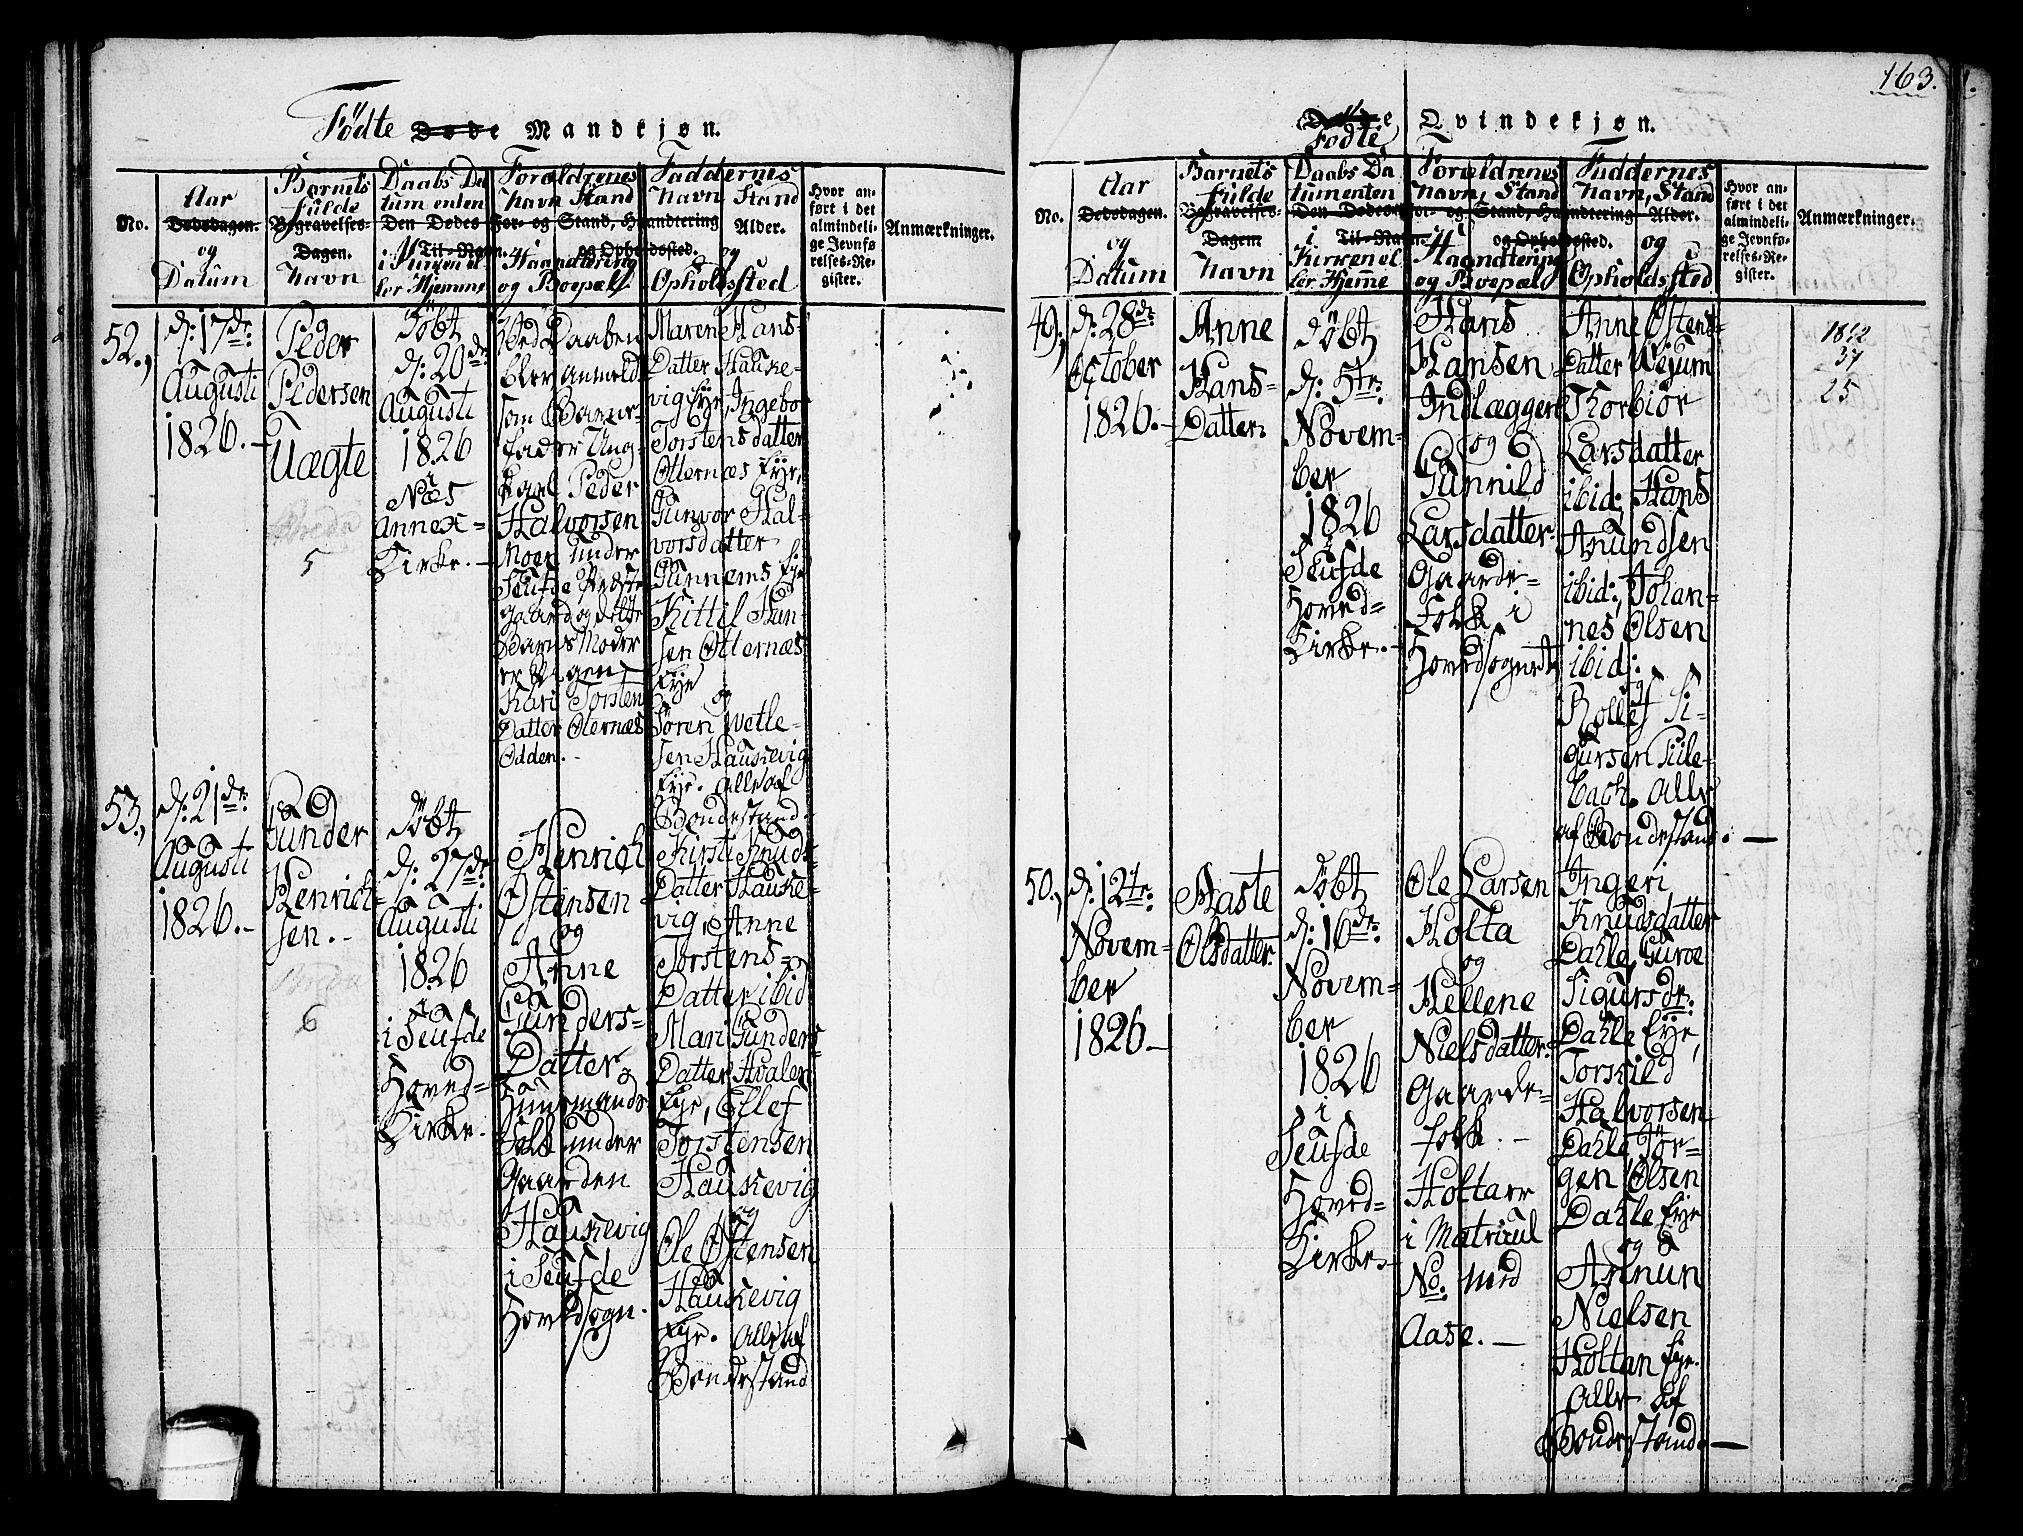 163.
Födte Døde Mandkjøn.
No.
Aar
Dødsdagen.
og
Datum
Barnets
fulde
Begravelses-
Dagen.
Navn
Daabs Da
tum enten
Den Dødes For- og
Til-Navn.
i Kirken el
ler Hjemme
Forældrenes
Navn Stand
Stand, Haandtering
og Opholdssted.
Haandtering
og Boepæl
Faddernes
Navn Stand
Alder.
og
Opholdssted
Hvor an-
ført i det
almindeli-
ge Jevnfø
relses-Re-
gister.
Anmærkninger.
52.,
d: 17de:
Augusti
1826.-
Peder
Pedersen
Uægte
5
Döbt
d: 20de
Augusti
1826
i
Næs
Annex=
Kirke.-
Ved Daaben
blev anmeldt
som Barne-
fader Ung-
karl Peder
Halvorsen
Moen under
Seufde Præste
gaard og dette
Barns Moder
er Pigen
Kari Torsten
Datter Oternæs
Odden.-
Maren Hans-
Datter Hauke-
vig Eye, Ingebor
Torstensdatter
Otternæs Eye,
Gunvor Hal-
vorsdatter
Gunnems Eye
Kittil Han-
sen Otternæs
Eye
og
Sören Wetle-
sen Haukevig
Eye. Alle af
Bondestand.
53.,
d: 21de:
Augusti
1826.-
Gunder
Henrich-
sen.-
6
Döbt
d: 27de:
Augusti
1826
i Seufde
Hoved=
Kirke.
Henrich
Östensen
og
Anne
Gunders-
Datter
Huusmands
Folk under
Gaarden
Haukevig
i Seufde
Hovedsogn.
Kirsti Knuds-
Datter Hauke-
vig, Anne
Torstens-
Datter ibid
Mari Gunders-
Datter Hvalen
Eye, Ellef
Torstensen
Haukevig
og
Ole Östensen
Haukevig
Eye. Alle af
Bondestand
Døde Qvindekjøn.
Födte
No.
Aar
Dødsdagen.
og
Datum
Barnets
fulde
Begravelses-
Dagen
Navn
Daabs Da
tumenten
Den Dødes For- og
i Til-Navn.
Kirken el
ler Hjemme
Forældrenes
Navn, Stand
Stand, Haandtering
og Opholdssted.
Haandtering
og Boepæl
Faddernes
Navn, Stand
Alder.
og
Opholdssted
Hvor an-
ført i det
almindeli-
ge Jevnfø-
relses-Re-
gister.
Anmærkninger.
49,
d: 28de
October
1826.-
Anne
Hans-
Datter.
Döbt
d: 5te:
Novem-
ber
1826
i
Seufde
Hoved=
Kirke.-
Hans
Hansen
Indlæggen
og
Gunnild
Larsdatter-
Gaarde-
Folk i
Hovedsognet
Anne Östens-
Datter Weyum
Thorbiör
Larsdatter
ibid; Hans
Anundsen
ibid:, Johan-
nes Olsen
ibid:
og
Rollef Si-
gursen Tüle-
bach. Alle
af Bondestand. -
1812
37
25
50.,
d: 12te:
Novem-
ber
1826.-
Aaste
Olsdatter.
Döbt
d: 16de:
Novem-
ber
1826
i
Seufde
Hoved=
Kirke.
Ole Larsen
Holta
og
Hellene
Nielsdatter.
Gaarde-
folk.-
Holtan
i Matricul
No: med
Aase.-
Ingeri
Knudsdatter
Dahle, Guroe
Sigursdr:
Dahle Eye,
Torkild
Halvorsen
Dahle, Jör-
gen Olsen
Dahle Eye
og
Annun
Nielsen
Holtan Eye.
Alle af
Bondestand.-